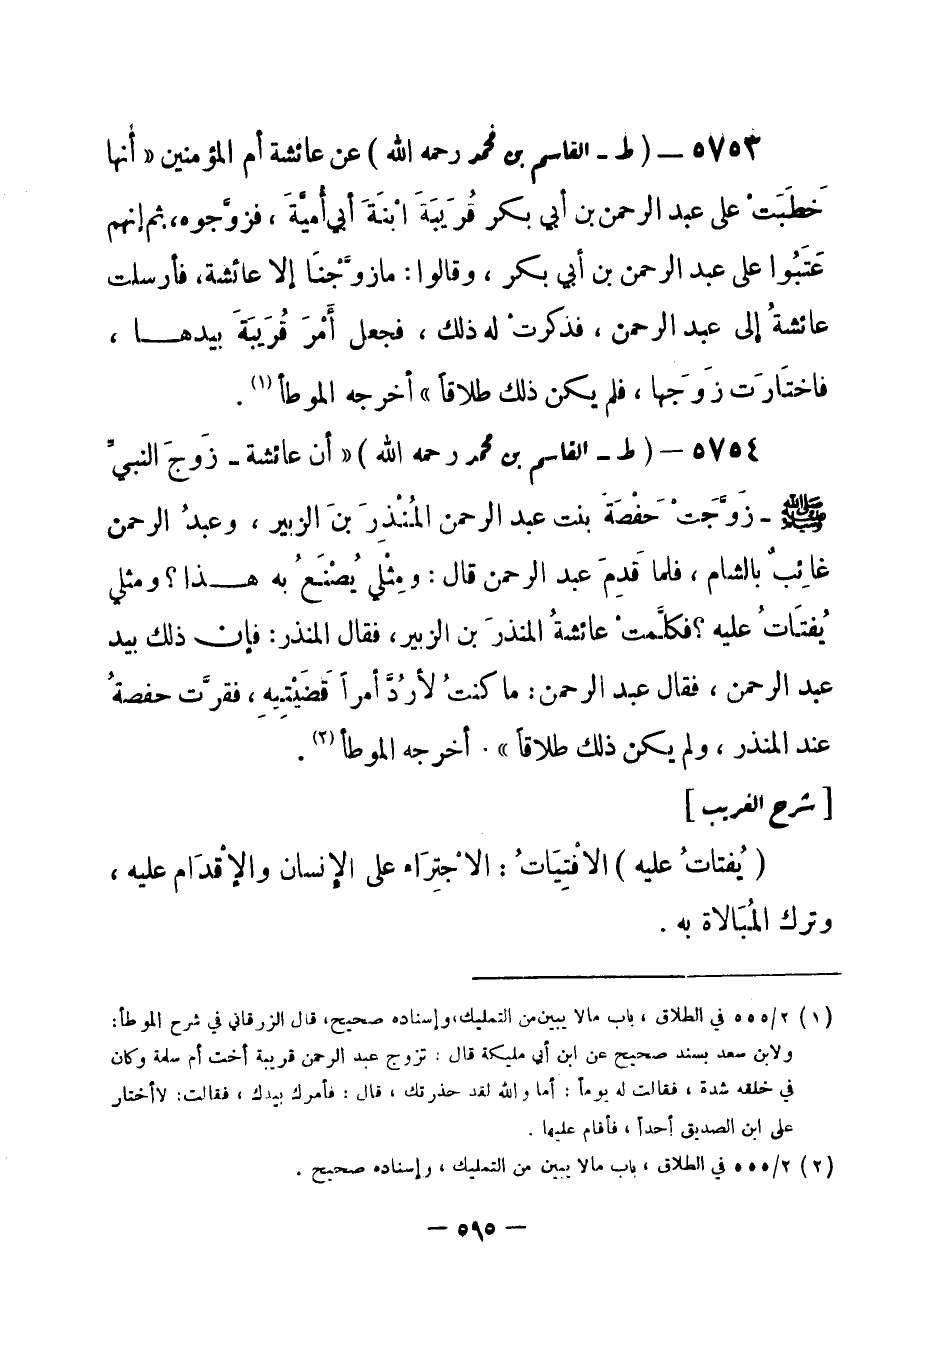 ٥٧٥٣ — ( ط - القاسم بن محمد رحمه الله ) عن عائشة أم المؤمنين « أنها
خَطَبَتْ على عبد الرحمن بن أبي بكر قُرَيبَةَ ابْنَةَ أبي أُميَّةَ ، فزوَّجوه، ثم إنهم
عَتَبُوا على عبد الرحمن بن أبي بكر ، وقالوا : ما زوَّجْنَا إلا عائشة، فأرسلت
عائشةُ إلى عبد الرحمن ، فذكرتْ له ذلك ، فجعل أَمْرَ قُرَيبَةَ بيدهـا ،
فاختَارَت زَوجَها ، فلم يكن ذلك طلاقاً » أخرجه الموطأ (١) .
٥٧٥٤ — ( ط - القاسم بن محمد رحمه الله ) « أن عائشة - زَوجَ النبيِّ
ﷺ - زَوَّجَتْ حَفْصَةَ بنت عبد الرحمن المُنْذِرَ بنَ الزبير ، وعبدُ الرحمن
غائِبٌ بالشام ، فلما قَدِمَ عبد الرحمن قال : ومِثْلي يُصْنَعُ به هـذا ؟ ومثلي
يُفتَاتُ عليه ؟ فكلَّمتْ عائشةُ المنذرَ بن الزبير، فقال المنذر : فإن ذلك بيد
عبد الرحمن ، فقال عبد الرحمن : ما كنتُ لأرُدَّ أمراً قَضَيْتِيهِ ، فقرَّت حفصةُ
عند المنذر ، ولم يكن ذلك طلاقاً » . أخرجه الموطأ (٢) .
[ شرح الغريب ]
( يُفتاتُ عليه ) الافْتِيَاتُ : الاجْتِرَاء على الإنسان والإقْدَام عليه ،
وترك المُبَالاة به .
(١) ٢/ ٥٥٥ في الطلاق ، باب مالا يبين من التمليك، وإسناده صحيح، قال الزرقاني في شرح الموطأ:
ولابن سعد بسند صحيح عن ابن أبي مليكة قال : تزوج عبد الرحمن قريبة أخت أم سلمة وكان
في خلقه شدة ، فقالت له يوماً : أما والله لقد حذرتك ، قال : فأمرك بيدك ، فقالت: لا أختار
على ابن الصديق أحداً ، فأقام عليها .
(٢) ٢/ ٥٥٥ في الطلاق ، باب مالا يبين من التمليك ، وإسناده صحيح .
— ٥٩٥ —